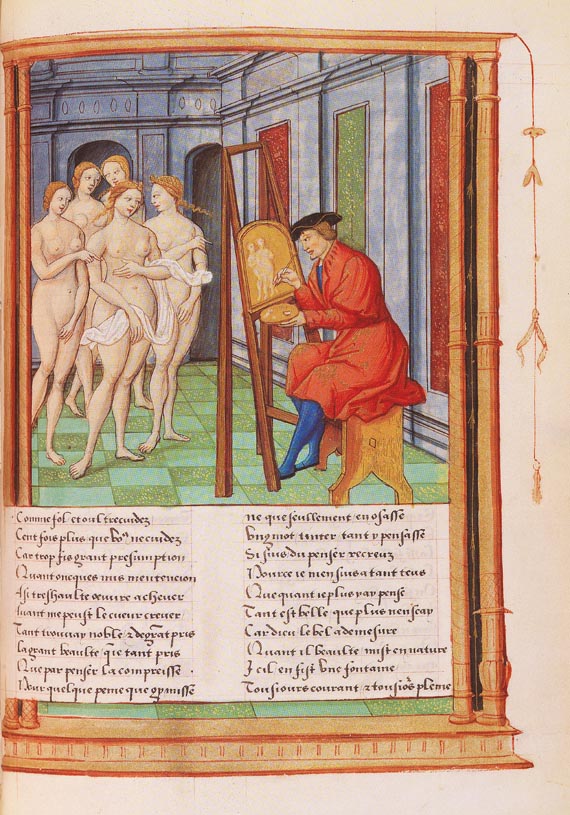 Comme fol et oultrecuidez
Cent fois plus que vo⁹ ne cuidez
Car trop fis grant presumption
Quant oncques mis mentencion
A si treshaulte oeuvre achever
Avant me peust le cueur crever
Tant trouvay noble & de grāt pris
La grant beaulte que tant pris
Que par penser la compreisse
Pour quelque peine que gy meisse
ne que seullement en osasse
Ung mot tinter tant y pensasse
Si suis du penser recreuz
Pource ie men suis a tant teus
Que quant ie plus y ay pense
Tant est belle que plus nen scay
Car dieu le bel a demesure
Quant il beaulte mist en nature
Il en fist une fontaine
Tousiours courant & tousiōs pleine